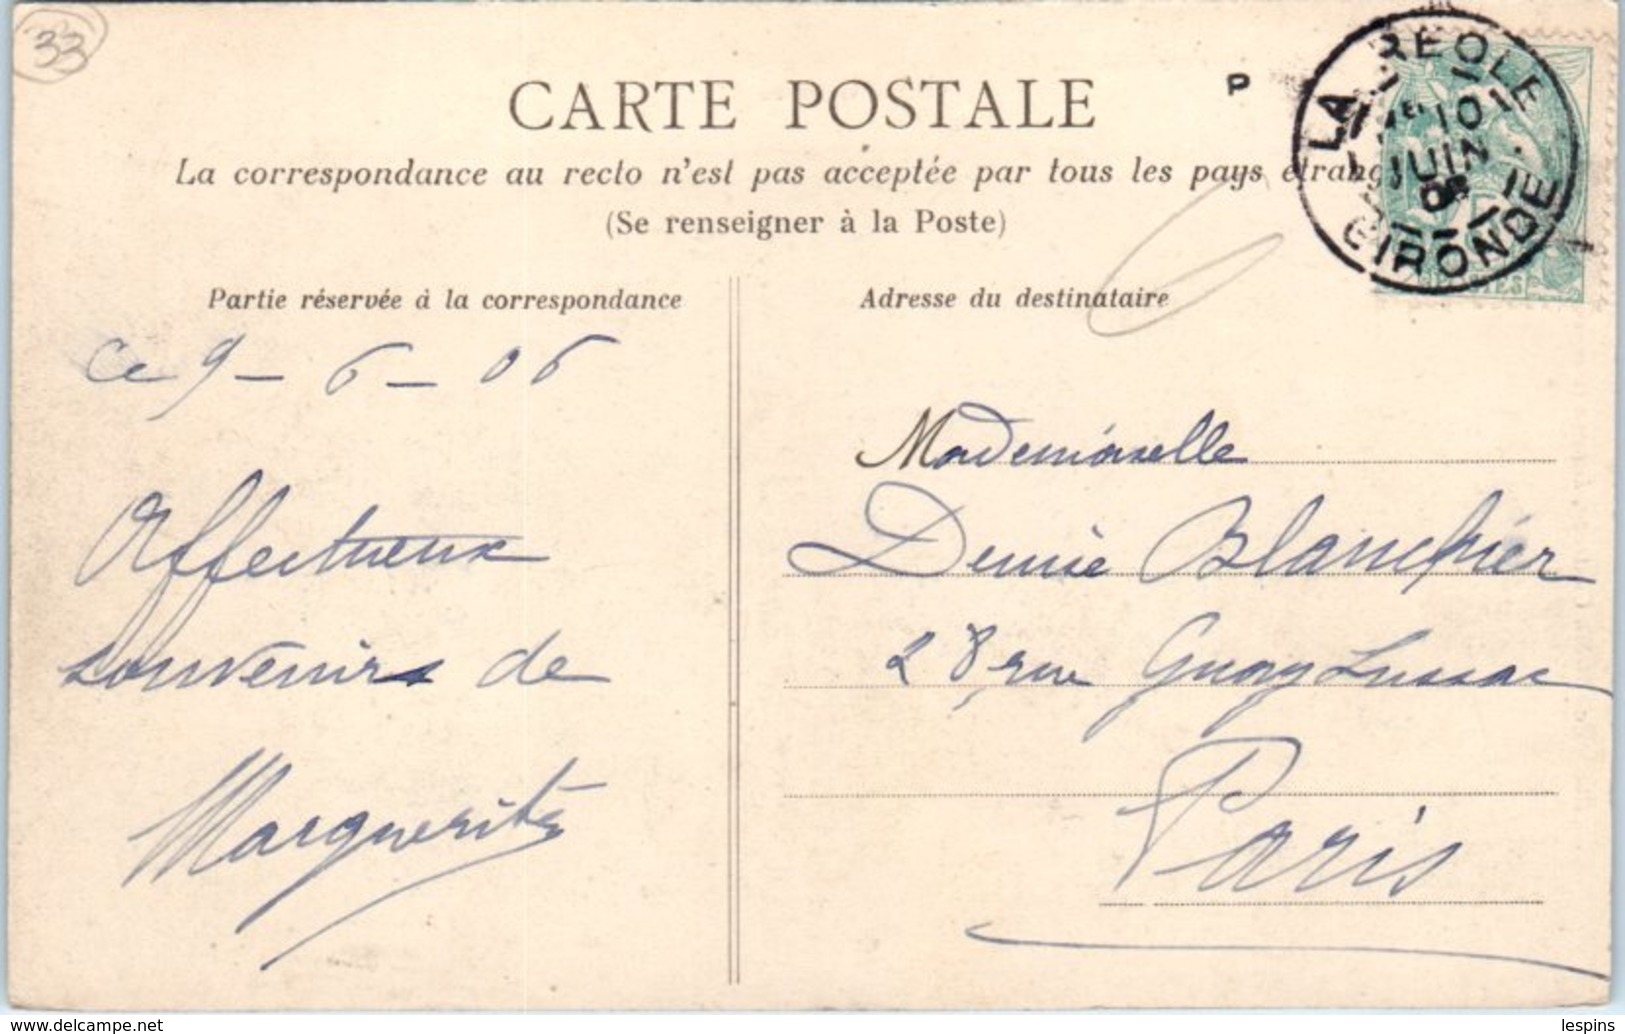 33
CARTE POSTALE
P
La correspondance au recto n'est pas acceptée par tous les pays étrang
(Se renseigner à la Poste)
LA REOLE
10
JUIN
06
GIRONDE
Partie réservée à la correspondance
Adresse du destinataire
Ce 9 - 6 - 06
Affectueux
souvenirs de
Marguerite
Mademoiselle
Denise Blanchier
28, rue Guay Lussac
Paris
www.delcampe.net
lespins